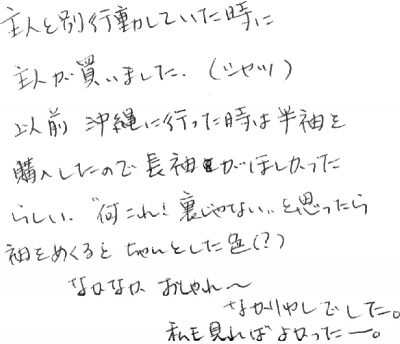 主人と別行動していた時に
主人が買いました.（シャツ）
以前 沖縄に行った時は半袖を
購入したので長袖がほしかった
らしい. "何これ!裏じゃない"と思ったら
袖をめくると ちゃんとした色(?)
なかなか おしゃれ〜
なかりゃしでした。
私も見ればよかったー。